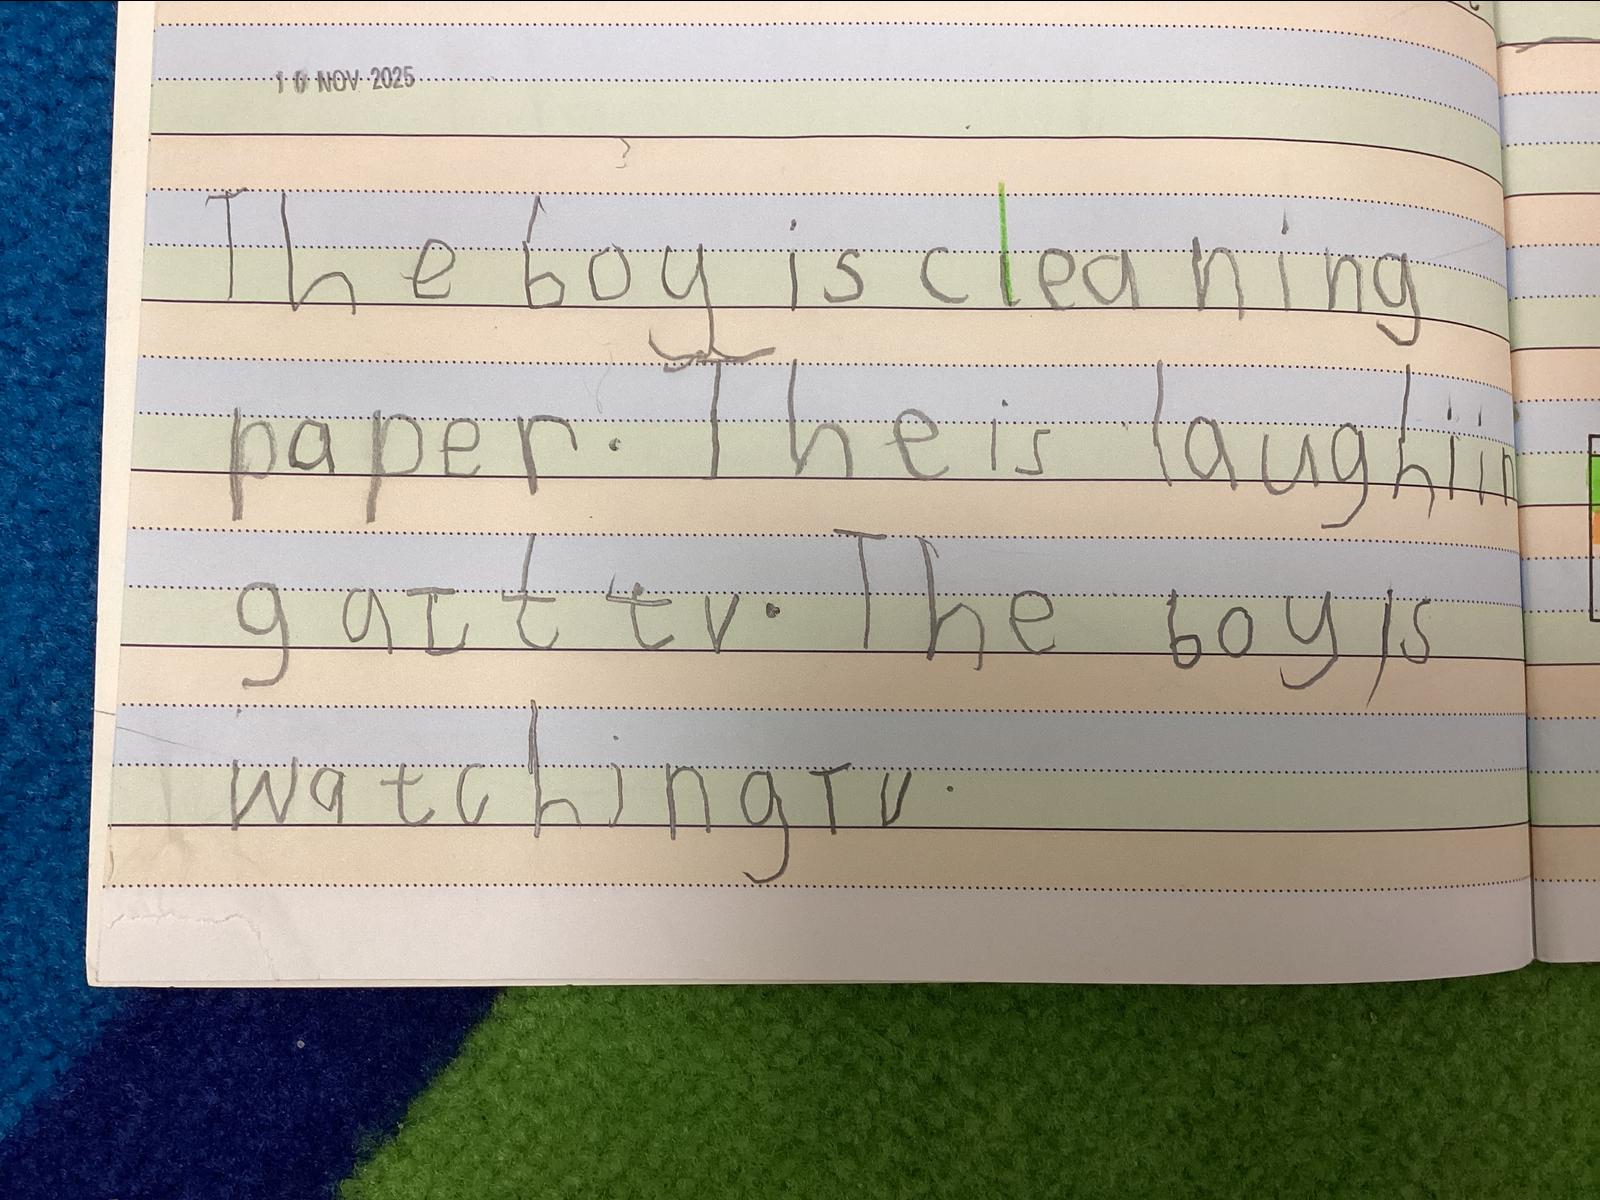 10 NOV 2025
The boy is cleaning
paper. The is laughiin
g at t tv. The boy is
watching Tv.